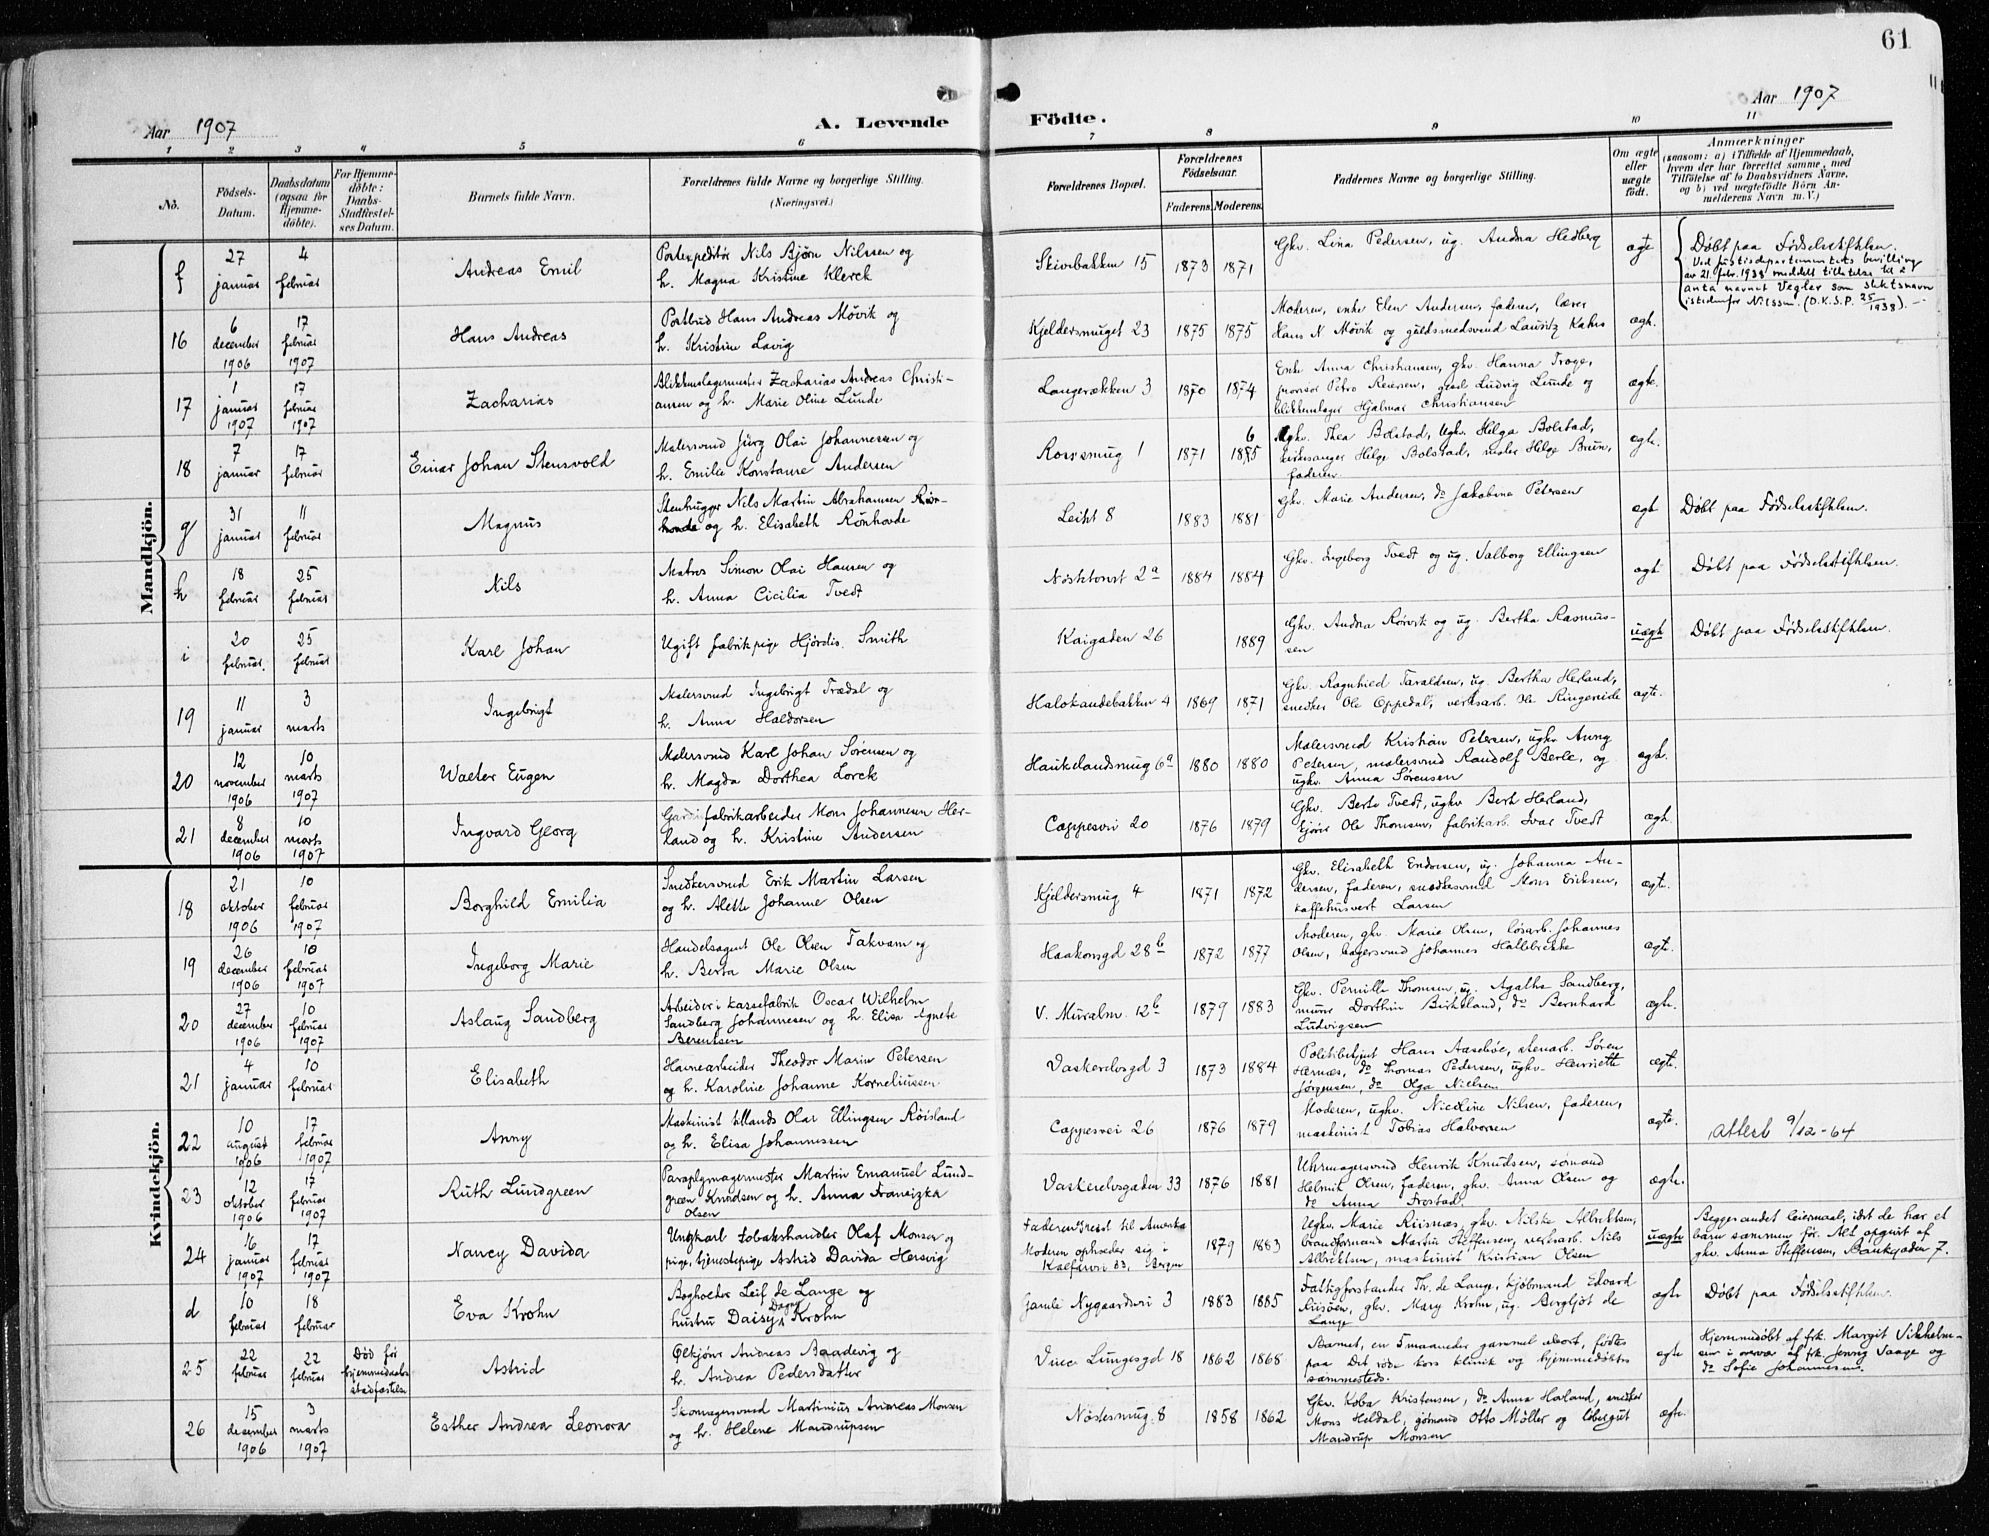 61
Aar 1907
A. Levende
Födte.
Aar 1907
1 2 3 4 5 6 7 8 9 10 11
No.
Födsels-
Datum.
Daabsdatum
(ogsaa for
Hjemme-
döbte).
For Hjemme-
döbte:
Daabs-
Stadfæstel-
ses Datum.
Barnets fulde Navn.
Forældrenes fulde Navne og borgerlige Stilling.
(Næringsvei.)
Forældrenes Bopæl.
Forældrenes
Födselsaar.
Faderens.
Moderens.
Faddernes Navne og borgerlige Stilling.
Om ægte
eller
uægte
födt.
Anmærkninger
(saasom: a) i Tilfælde af Hjemmedaab,
hvem der har forrettet samme, med
Tilföielse af to Daabsvidners Navne,
og b) ved uægtefödte Börn An-
melderens Navn m. V.)
Mandkjön.
f
27
januar
4
februar
Andreas Emil
Postexpeditør Nils Bjørn Nilssen og
h. Magna Kristine Klerck
Skivebakken 15
1873
1871
Gkv. Lina Pedersen, ug. Andrea Hedberg
ægte
Døbt paa Fødselsstiftelsen.
Ved Justisdepartementets bevilling
av 21. febr. 1938 meddelt tillatelse til å
anta navnet Vegler som slektsnavn
istedenfor Nilssen. (D.K.S.P. 25/1938).
16
6
december
1906
17
februar
1907
Hans Andreas
Postbud Hans Andreas Møvik og
h. Kristine Lavig
Kjeldersmuget 23
1875
1875
Moderen, enke Elen Andersen, faderen, lærer
Hans N. Møvik og guldsmedsvend Lauritz Kahrs
ægte.
17
1
januar
1907
17
februar
1907
Zacharias
Blikkenslagermester Zacharias Andreas Christi-
ansen og h. Marie Oline Lunde
Langerækken 3
1870
1874
Enke Anna Christiansen, gkv. Hanna Troye,
provisor Petro Reiersen, gesel Ludvig Lunde og
blikkenslager Hjalmar Christiansen
ægte.
18
7
januar
17
februar
Einar Johan Stensvold
Malersvend Jürg Olai Johannessen og
h. Emilie Konstanse Andersen
Rosesmug 1
1871
1875
6
Ugkv. Thea Bolstad, ugkv. Helga Bolstad,
kirkesanger Helge Bolstad, maler Helge Bruun,
faderen
ægte.
g
31
januar
11
februar
Magnus
Stenhugger Nils Martin Abrahamsen Røn-
hovde og h. Elisabeth Rønhovde
Leitet 8
1883
1881
Gkv. Marie Andersen, do Jakobina Petersen
ægte
Døbt paa Fødselsstiftelsen.
h
18
februar
25
februar
Nils
Matros Simon Olai Hansen og
h. Anna Cicilia Tvedt
Nøsttorvet 2a
1884
1884
Gkv. Ingeborg Tvedt og ug. Valborg Ellingsen
ægte
Døbt paa Fødselsstiftelsen.
i
20
februar.
25
februar
Karl Johan
Ugift fabrikpige Hjørdis Smith
Kaigaden 26
1889
Gkv. Andrea Rørvik og ug. Bertha Rasmus-
sen
uægte
Døbt paa Fødselsstiftelsen.
19
11
januar
3
marts
Ingebrigt
Malersvend Ingebrigt Trædal og
h. Anna Haldorsen
Halvkandebakken 4
1869
1871
Gkv. Ragnhild Taraldsen, ug. Bertha Herland,
snedker Ole Oppedal, verksarb. Ole Ringereide
ægte.
20
12
november
1906
10
marts
1907
Walter Eugen
Malersvend Karl Johan Sørensen og
h. Magda Dorthea Lorck
Haukelandsmug 6a
1880
1880
Malersvend Kristian Petersen, ugkv. Anny
Petersen, malersvend Randolf Berle, og
ugkv. Anna Sørensen
ægte.
21
8
december
1906
10
marts
1907
Ingvard Georg
Gardinfabrikarbeider Mons Johannesen Her-
land og h. Kristine Andersen
Cappesvei 20
1876
1879
Gkv. Berte Tvedt, ugkv. Berth Herland,
kjører Ole Thomsen, fabrikarb. Ivar Tvedt
ægte.
Kvindekjön.
18
21
oktober
1906
10
februar
1907
Borghild Emilia
Snedkersvend Erik Martin Larsen
og h. Alette Johanne Olsen
Kjeldersmug 4
1871
1872
Gkv. Elisabeth Endresen, ug. Johanna An-
dersen, faderen, snedkersvend Mons Eriksen,
kaffehusvert Larsen
ægte.
19
26
december
1906
10
februar
1907
Ingeborg Marie
Handelsagent Ole Olsen Takvam og
h. Berta Marie Olsen
Haakonsgd 28b
1872
1877
Moderen, gkv. Marie Olsen, løsarb. Johannes
Olsen, bagersvend Johannes Hallebrekke
ægte.
20
27
december
1906
10
februar
1907
Aslaug Sandberg
Arbeider i kassefabrik Oscar Wilhelm
Sandberg Johannesen og h. Elisa Agnete
Berentsen
V. Muralm. 12b
1879
1883
Gkv. Pernille Thomsen, ug. Agathe Sandberg,
murer Dorthin Birkeland, do Bernhard
Ludvigsen
ægte.
21
4
januar
10
februar
Elisabeth
Havnearbeider Theodor Marin Petersen
og h. Karoline Johanne Korneliussen
Vaskerelvsgd 3
1873
1884
Politibetjent Hans Aasebøe, stenarb. Søren
Hernæs, do Thomas Pedersen, ugkv. Henriette
Jørgensen, do Olga Nielsen
ægte.
22
10
august
1906
17
februar
1907
Anny
Maskinist tillands Olai Ellingsen Røisland
og h. Elisa Johannessen
Cappesvei 26
1876
1879
Moderen, ugkv. Nicoline Nilsen, faderen,
maskinist Tobias Halvorsen
ægte.
Attest 9/12-64
23
12
oktober
1906
17
februar
1907
Ruth Lundgreen
Paraplymagermester Martin Emanuel Lund-
green Knudsen og h. Anna Franciska
Olsen
Vaskerelvsgaden 33
1876
1881
Uhrmagersvend Henrik Knudsen, sømand
Helmik Olsen, faderen, gkv. Anna Olsen og
do Anna Frostad.
ægte.
24
16
januar
1907
17
februar
1907
Nancy Davida
Ungkarl tobakshandler Olaf Monsen og
pige, tjenestepige Astrid Davida Hersvig
Faderen reist til Amerika
Moderen opholder sig i
Kalfarvei 83, Bergen
1879
1883
Ugkv. Marie Riisnæs, gkv. Nilske Albriktsen,
brandformand Martin Steffensen, verksarb. Nils
Albriktsen, maskinist Kristian Olsen
uægte
Begges andet leiermaal, idet de har et
barn sammen før. Alt opgivet af
gkv. Anna Steffensen, Banegaden 7.
d
10
februar
18
februar
Eva Krohn
Bogholder Leif de Lange og
hustru Daisy Dagny Krohn
Gamle Nygaardsvei 3
1883
1885
Fattigforstander Th. de Lange, kjøbmand Edvard
Riisøen, gkv. Mary Krohn, ug. Bergljot de
Lange
ægte
Døbt paa Fødselsstiftelsen.
25
22
februar
22
februar
Død før
hjemmedaabs
stadfæstelse
Astrid
Ølkjører Andreas Baadevig og
h. Andrea Pedersdatter
Vincs Lungesgd 18
1862
1868
Barnet, en 5 maaneder gammel abort, fødtes
paa Det røde kors klinik og hjemmedøbtes
sammesteds.
ægte
Hjemmedøbt af frk. Margit Vikholm-
sen i overvær af frk. Jenny Saage og
do Sofie Johannesen.
26
15
desember
1906
3
marts
1907
Esther Andrea Leonora
Skomagersvend Martinius Andreas Monsen
og h. Helene Mandrupsen
Nøstesmug. 8
1858
1862
Gkv. Koba Kristensen, do Anna Havland, snedker
Mons Heldal, sjømand Otto Møller og løbergut
Mandrup Monsen
ægte.